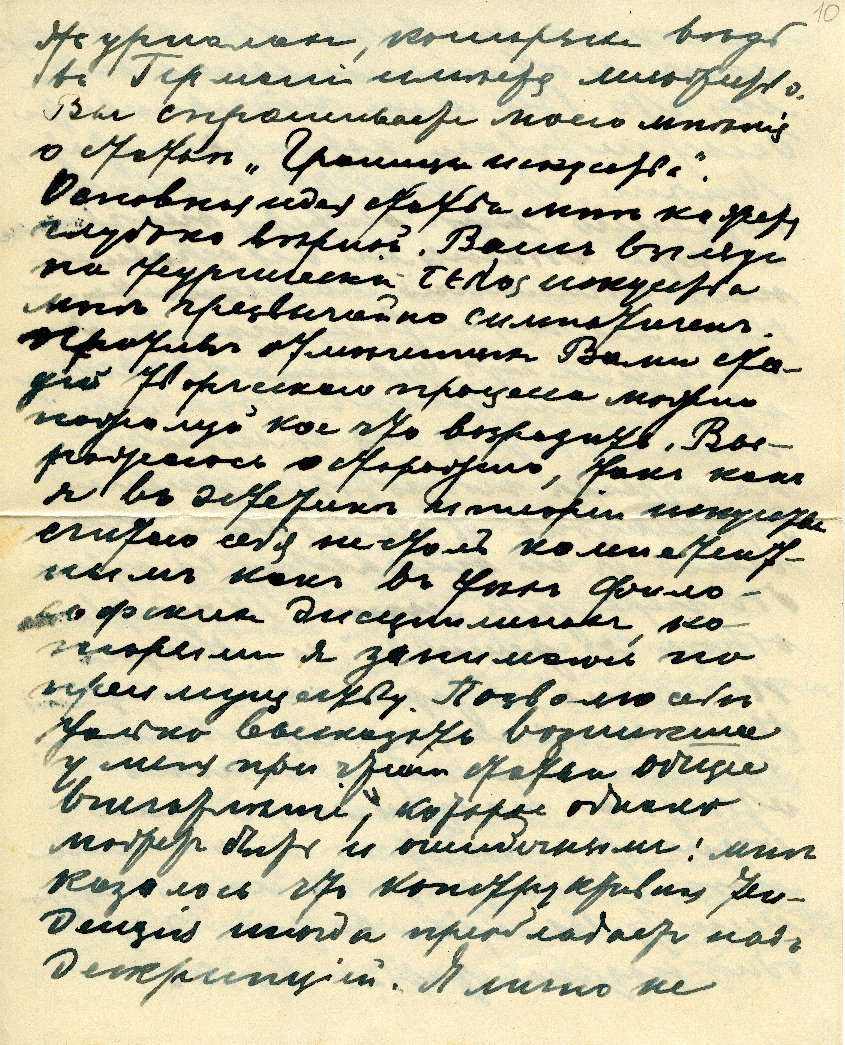 10
журналахъ, которыхъ вездѣ
въ Германіи имѣется множество.
Вы спрашиваете моего мнѣнія
о статьѣ „Границы искусства“.
Основная идея статьи мнѣ кажется
глубоко вѣрной. Вашъ взглядъ
на теургическій τέλος искусства
мнѣ чрезвычайно симпатиченъ.
Противъ отмѣченныхъ Вами ста-
дій творческаго процесса можно
пожалуй кое что возразить. Вы-
ражаюсь осторожно, такъ какъ
я въ эстетикѣ и теоріи искусства
считаю себя не столь компетент-
нымъ какъ въ тѣхъ фило-
софскихъ дисциплинахъ, ко-
торыми я занимаюсь по
преимуществу. Позволю себѣ
только высказать возникшія
у меня при чтеніи статьи общія
впечатлѣнія, которые однако
можетъ быть и ошибочны: мнѣ
казалось что конструктивная тен-
денція иногда преобладаетъ надъ
дескрипціей. Я лично не